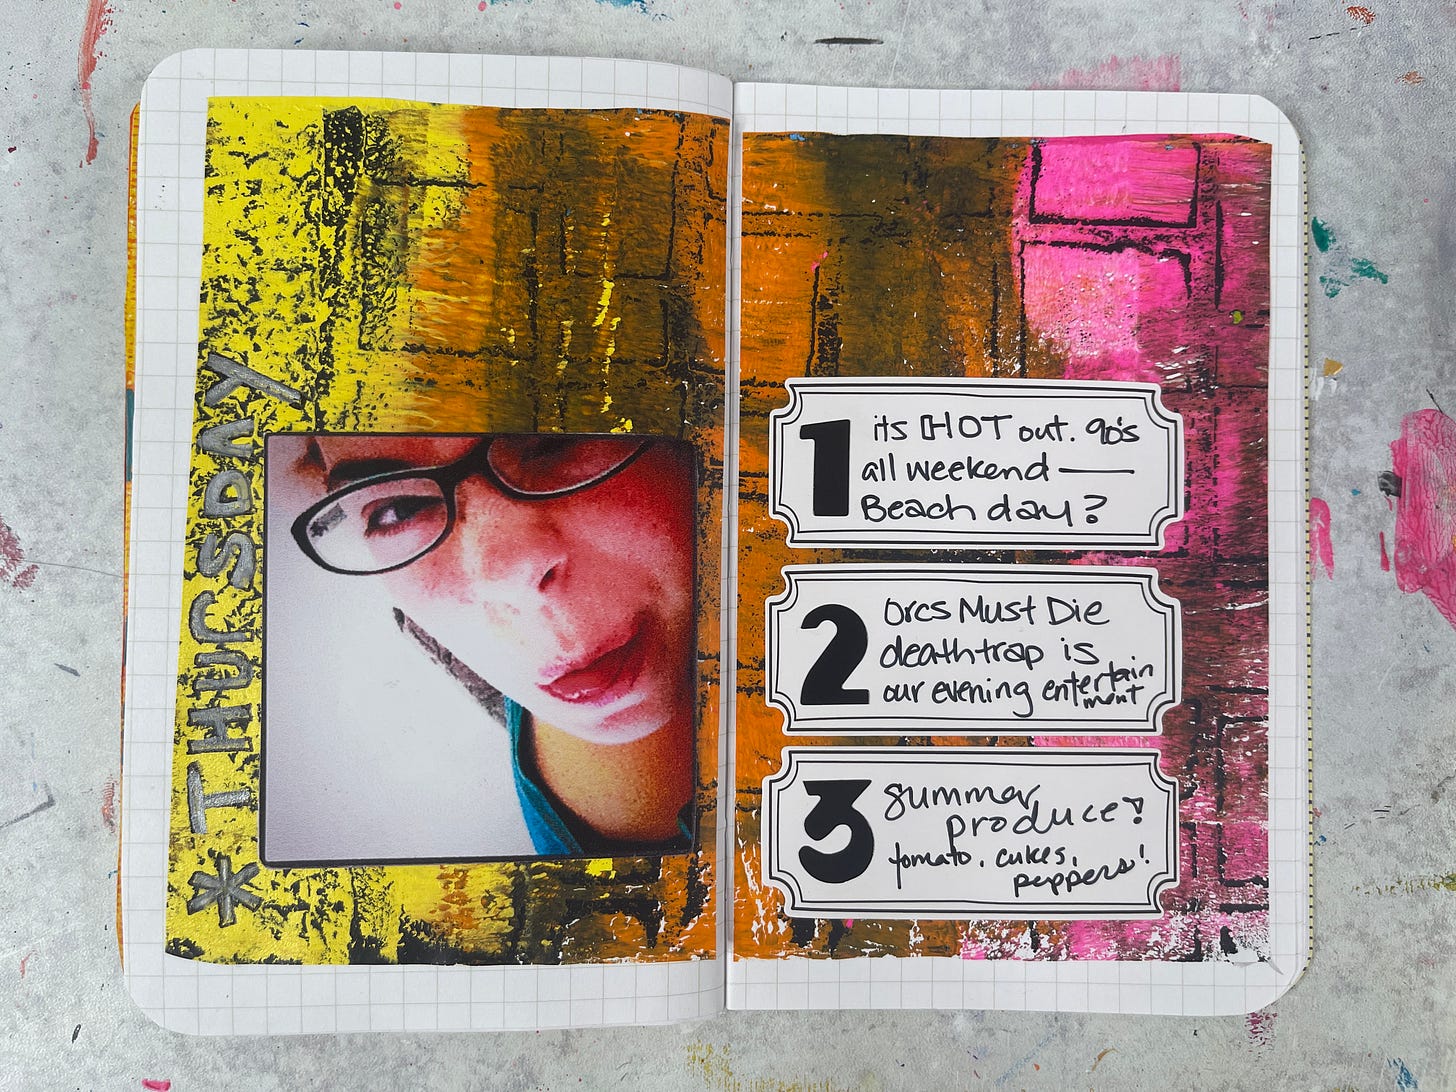 * THURSDAY
1 its HOT out. 90's
all weekend —
Beach day?
2 Orcs Must Die
deathtrap is
our evening entertain
ment
3 summer
produce!
tomato, cukes,
peppers!